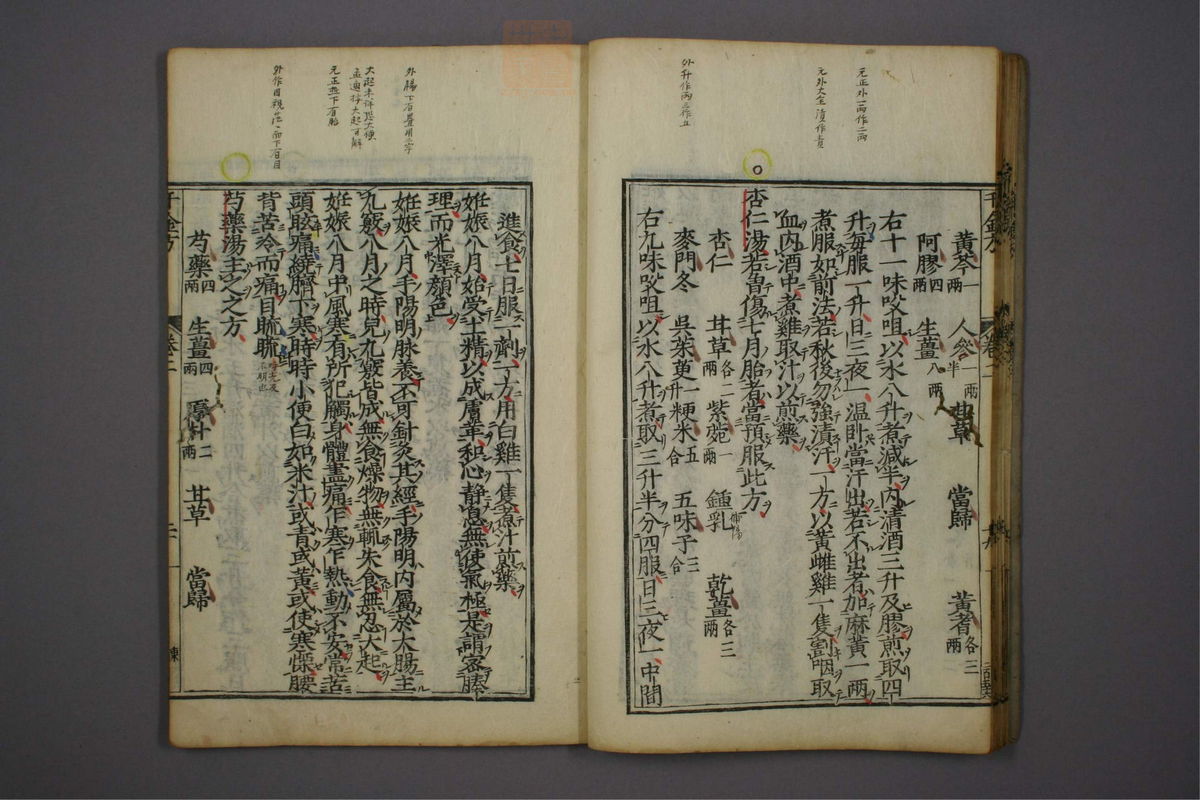 黃芩一兩 人參一兩半 甘草 當歸 黃耆各三兩
阿膠四兩 生薑八兩
右十一味㕮咀以水八升煮減半内清酒三升及膠煎取四
升每服一升日三夜一溫卧當汗出若不出者加麻黃一兩
煮服如前法若秋後勿強漬汗一方以黃雌雞一隻割咽取
血内酒中煮雞取汁以煎藥
杏仁湯若曽傷七月胎者當預服此方
杏仁 甘草各二兩 紫菀一兩 鍾乳 乾薑各三兩
麥門冬 吳茱萸一升 粳米五合 五味子三合
右九味㕮咀以水八升煮取三升半分四服日三夜一中間
進食七日服一劑一方用白雞一隻煮汁煎藥
妊娠八月始受土精以成膚革和心靜息無使氣極是謂密腠
理而光澤顔色
妊娠八月手陽明脉養不可針灸其經手陽明内屬於大腸主
九竅八月之時兒九竅皆成無食燥物無輒失食無忍大起
妊娠八月中風寒有所犯觸身體盡痛作寒乍熱動不安常苦
頭眩痛繞臍下寒時時小便白如米汁或青或黃或使寒慄腰
背苦冷而痛目䀮䀮
芍藥湯主之之方
芍藥四兩 生薑四兩 厚朴二兩 甘草 當歸
千金方 卷二
元正外一兩作二兩
元外大全漬作責
外升作兩三作五